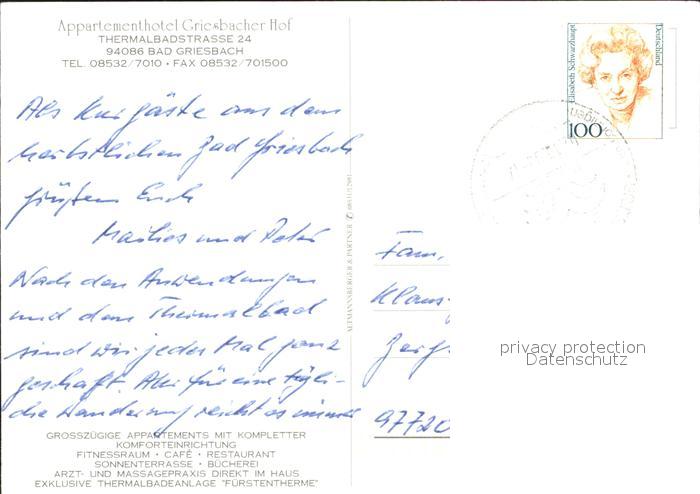 Appartementhotel Griesbacher Hof
THERMALBADSTRASSE 24
94086 BAD GRIESBACH
TEL. 08532/7010 · FAX 08532/701500
Als Kurgäste aus dem
herbstlichen Bad Griesbach
grüßen Euch
Marlies und Peter
Nach den Anwendungen
und dem Thermalbad
sind wir jedes Mal ganz
geschafft. Aber für eine tägli-
che Wanderung reicht es immer
GROSSZÜGIGE APPARTEMENTS MIT KOMPLETTER
KOMFORTEINRICHTUNG
FITNESSRAUM · CAFÉ · RESTAURANT
SONNENTERRASSE · BÜCHEREI
ARZT- UND MASSAGEPRAXIS DIREKT IM HAUS
EXKLUSIVE THERMALBADEANLAGE "FÜRSTENTHERME"
ALTMANNSBERGER & PARTNER
Elisabeth Schwarzhaupt
Deutschland
100
Fam.
Klaus
97720
privacy protection
Datenschutz